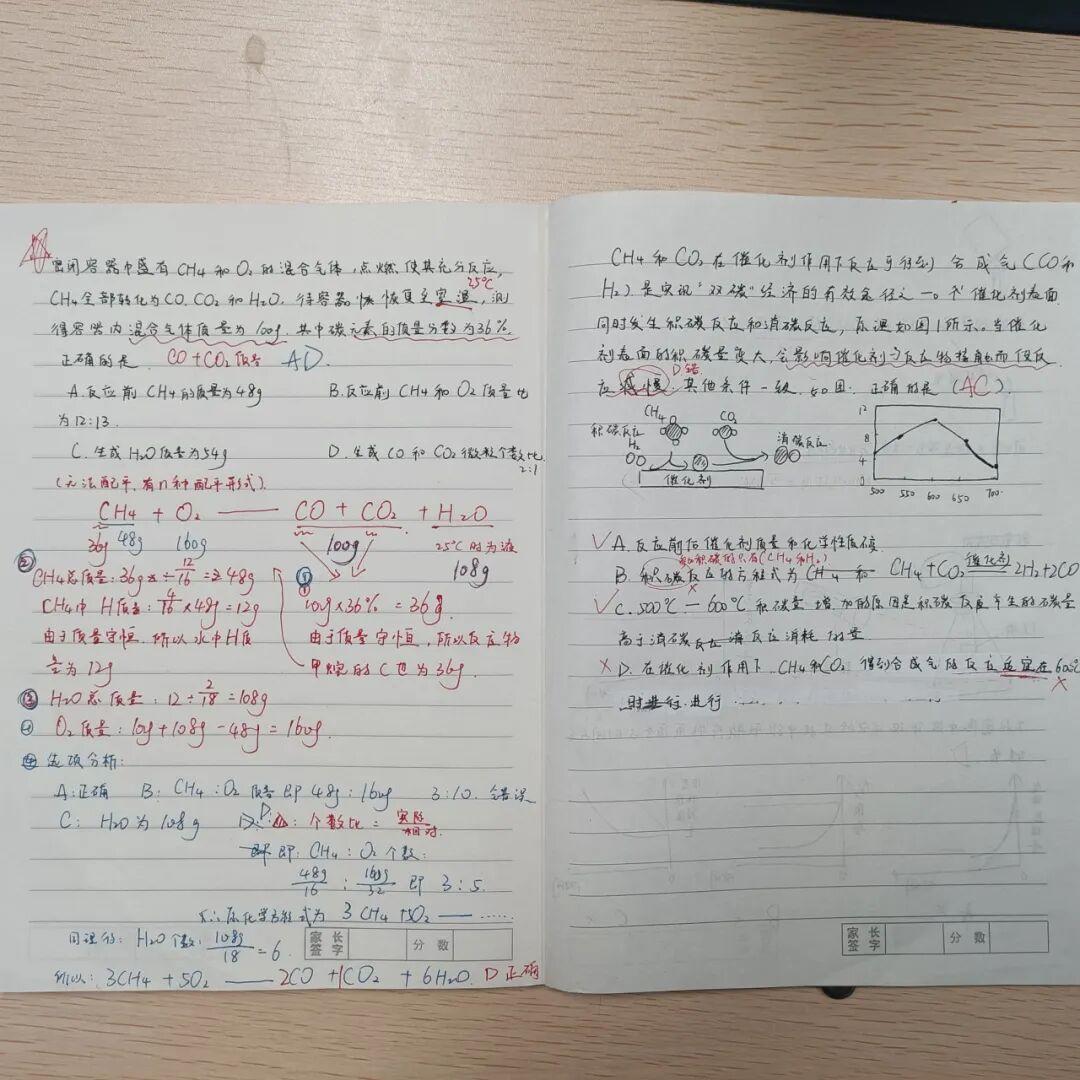 密闭容器中盛有CH4和O2的混合气体,点燃使其充分反应,
25℃
CH4全部转化为CO、CO2和H2O,待容器恢复至室温,测
得容器内混合气体质量为100g,其中碳元素的质量分数为36%.
正确的是 CO+CO2质量 AD.
A.反应前CH4的质量为48g B.反应前CH4和O2质量比
为12:13.
C.生成H2O质量为54g D.生成CO和CO2微粒个数比
2:1
(无法配平,有n种配平形式).
CH4 + O2 —— CO + CO2 + H2O
36g 48g 160g 100g 25℃时为液
108g
② CH4总质量:36g÷12/16=48g ①
CH4中H质量:4/16×48g=12g 100g×36%=36g
由于质量守恒,所以水中H质 由于质量守恒,所以反应物
量为12g 甲烷的C也为36g.
③ H2O总质量:12÷2/18=108g
④ O2质量:100g+108g-48g=160g.
选项分析:
A:正确 B:CH4:O2质量即48g:160g 3:10.错误
C:H2O为108g D:个数比=实际/相对.
即:CH4:O2个数:
48g/16:160g/32 即3:5.
原化学方程式为 3CH4+5O2——……
同理得:H2O个数:108g/18=6.
所以:3CH4+5O2——2CO+1CO2+6H2O. D正确
家长签字 分数
CH4和CO2在催化剂作用下反应可得到合成气(CO和
H2).是实现"双碳"经济的有效途径之一。催化剂表面
同时发生积碳反应和消碳反应,原理如图1所示。当催化
剂表面的积碳量变大,会影响催化剂与反应物接触而使反
D错
应减慢.其他条件一致.如图.正确的是(AC).
CH4 CO2
积碳反应 消碳反应
H2
催化剂
12
8
4
0
500 550 600 650 700
√A.反应前后催化剂质量和化学性质不变
B.积碳反应的方程式为 CH4+CO2 催化剂 2H2+2CO
√C.500℃—600℃积碳量增加的原因是积碳反应产生的碳量
高于消碳反应消耗的量
×D.在催化剂作用下,CH4和CO2得到合成气的反应适宜在600℃
时进行
家长签字 分数